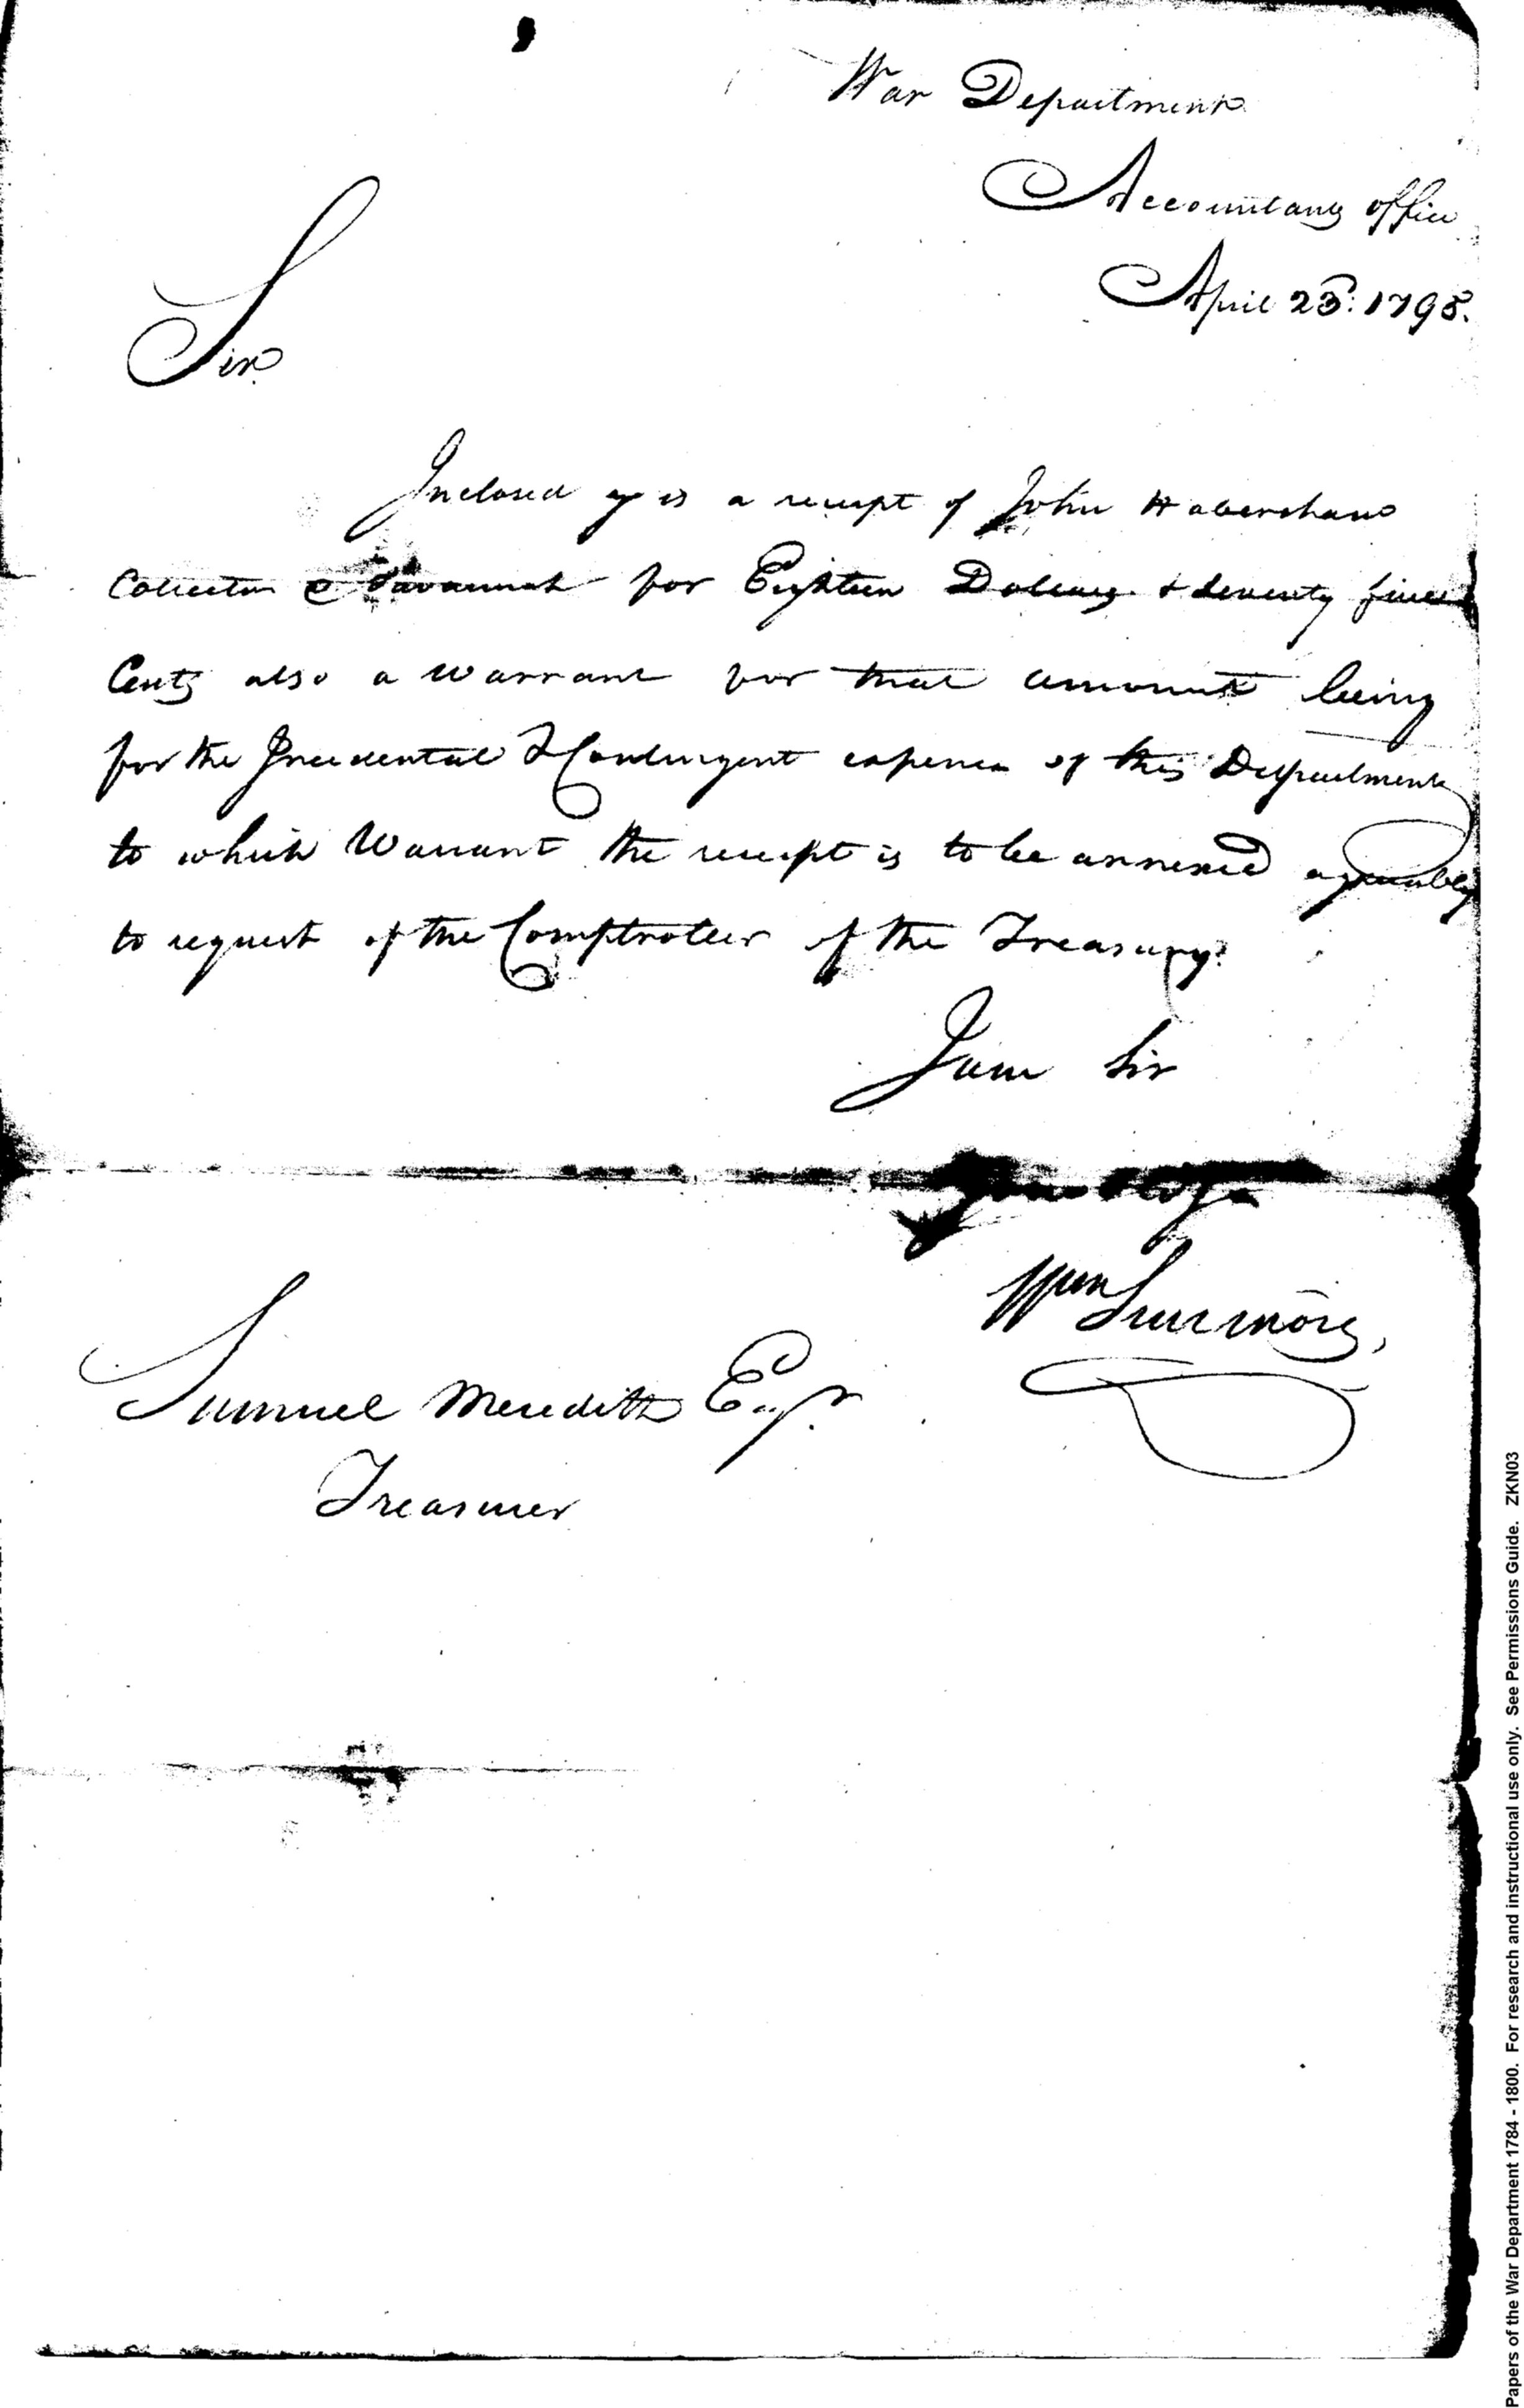 War Department
Accountants office
April 23d: 1798.
Sir
Inclosed is a receipt of John Habersham
Collector @ Savannah for Eighteen Dollars & seventy five
Cents also a Warrant for that amount being
for the Incidental & Contingent expences of this Department
to which Warrant the receipt is to be annexed agreeably
to request of the Comptroller of the Treasury.
I am Sir
Wm Simmons
Samuel Meredith Esqr.
Treasurer
Papers of the War Department 1784 - 1800. For research and instructional use only. See Permissions Guide. ZKN03